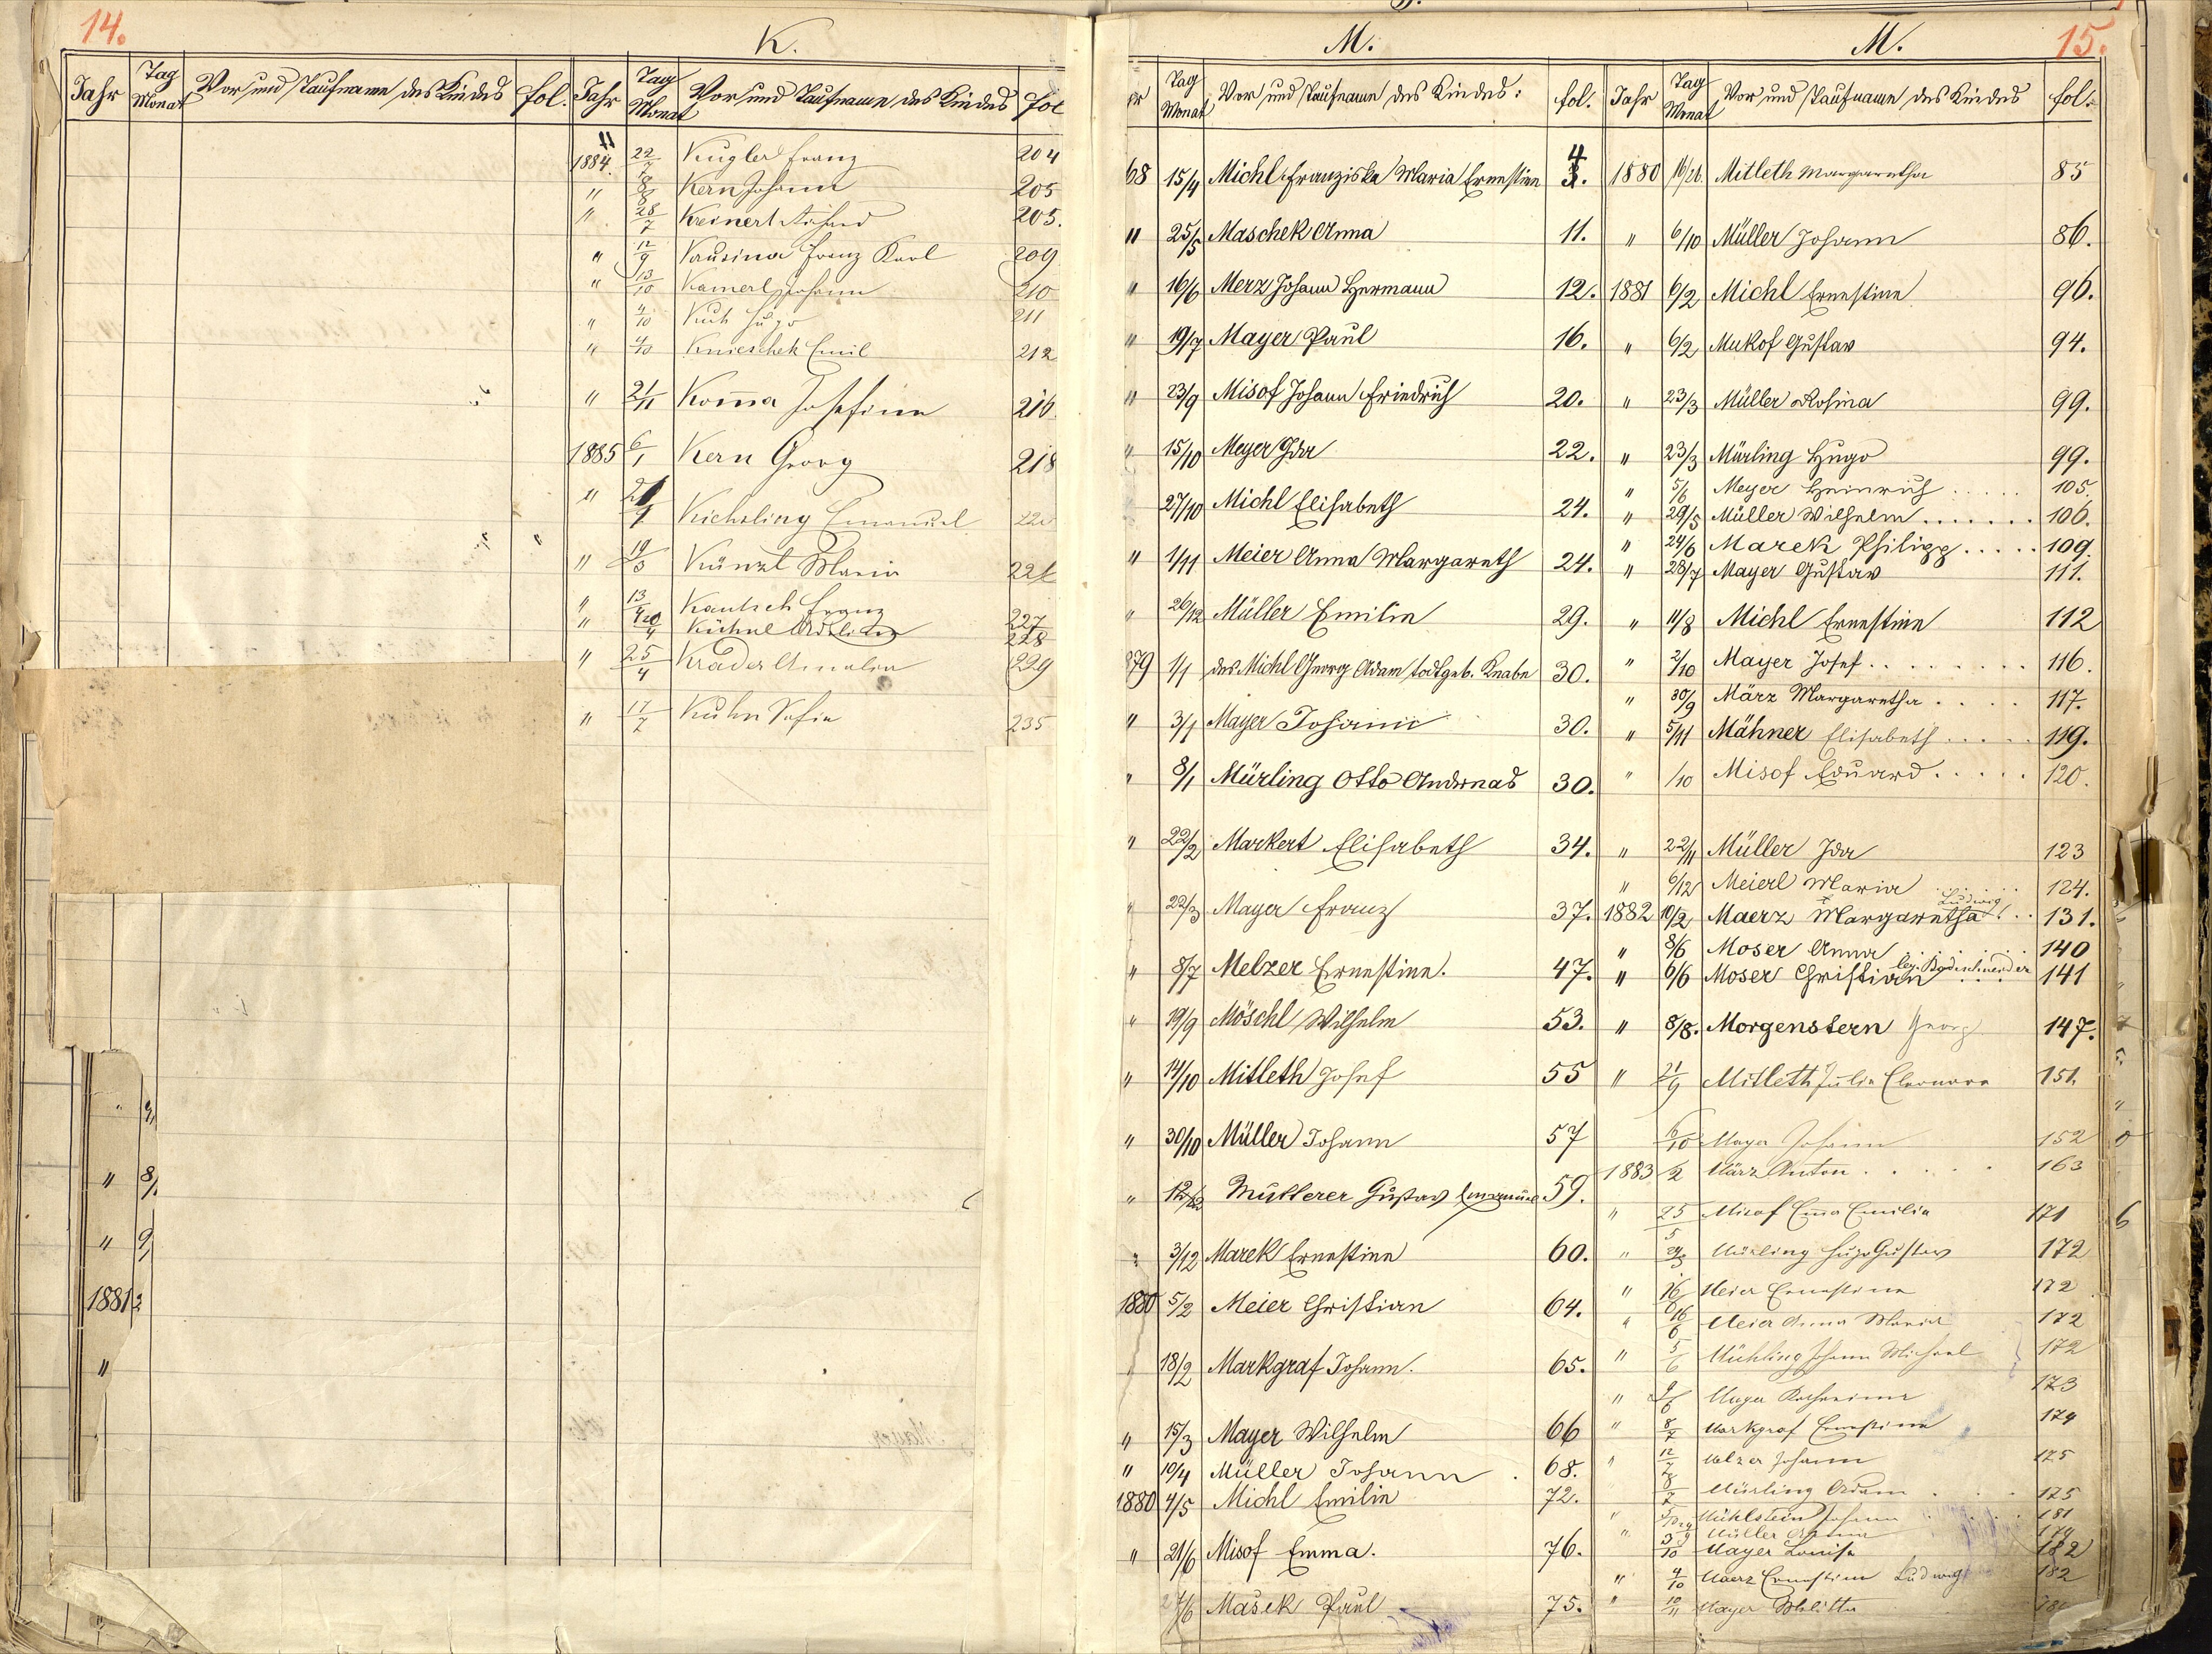 14.
K.
Jahr Tag Monat Vor und Taufname des Kindes fol. Jahr Tag Monat Vor und Taufname des Kindes fol
1884. 22/7 Kugler Franz 204
" 8/8 Kern Johann 205
" 28/7 Kreinert 205.
" 12/9 Franz Karl 209
" 13/10 Kamerl Johann 210
" 4/10 Hugo 211
" 4/10 Knieschek Emil 212
" 21/11 Kom̄a Josefine 216
1885 6/1 Kern Georg 218
" Kichsling Emanuel 220
" 19/3 Künzl Maria
" 13 Kautsch Franz 227
" Kühnl 228
" 25/4 Krader Amalia 229
" 17/7 Kuhn Sofie 235
" 8/
" 9/
1881
"
M.
Tag Monat Vor und Taufname des Kindes: fol.
68 15/4 Michl Franziska Maria Ernestine 4
" 25/5 Maschek Anna 11.
" 16/6 Merz Johann Hermann 12.
" 19/7 Mayer Paul 16.
" 23/9 Misof Johann Friedrich 20.
" 15/10 Meyer Ida 22.
27/10 Michl Elisabeth 24.
" 1/11 Meier Anna Margareth 24.
" 26/12 Müller Emilie 29.
879 1/1 des Michl Georg Adam todtgeb. Knabe 30.
" 3/1 Mayer Johann 30.
" 8/1 Mürling Otto Andreas 30.
" 22/2 Markert Elisabeth 34.
" 22/3 Mayer Franz 37.
" 8/7 Melzer Ernestine. 47.
" 19/9 Möschl Wilhelm 53.
" 14/10 Mitleth Josef 55
" 30/10 Müller Johann 57
" Mutterer Gustav Emanuel 59.
" 3/12 Marek Ernestine 60.
1880 5/2 Meier Christian 64.
18/2 Markgraf Johann. 65.
" 15/3 Mayer Wilhelm 66
" 10/4 Müller Johann . 68.
1880 4/5 Michl Emilie 72.
" 21/6 Misof Emma. 76.
Mašek Paul 75.
M.
15.
Jahr Tag Monat Vor und Taufname des Kindes fol.
1880 Mitleth Margaretha 85
" 6/10 Müller Johann 86.
1881 6/2 Michl Ernestine 96.
" 6/2 Mukof Gustav 94.
" 23/3 Müller Rosina 99.
" 23/3 Mürling Hugo 99.
" 5/6 Meyer Heinrich . . . . . 105.
" 29/5 Müller Wilhelm . . . . . . . 106.
" 24/6 Marek Philipp . . . . . 109.
" 28/7 Mayer Gustav 111.
" 11/8 Michl Ernestine 112
" 2/10 Mayer Josef . . . . . . . . . 116.
" 30/9 März Margaretha . . . . . 117.
" 5/11 Mähner Elisabeth . . . . . 119.
" /10 Misof Eduard . . . . . 120.
" 22/11 Müller Ida 123
" 6/12 Meierl Maria . . . . 124.
Ludwig
1882 10/2 Maerz Margaretha . . 131.
" 8/6 Moser Anna . . . . . . 140
" 6/6 Moser Christian . . . 141
" 8/8. Morgenstern Georg 147.
" 21/9 Mitleth Julie Eleonora 151.
6/10 Mayer Johann 152
1883 /2 März Anton . . . . . 163
" 25/5 Misof Emma Emilie 171
" Mürling Hugo Gustav 172
" 16 Meier Ernestine 172
" 16/6 Meier Anna Maria 172
" 5/6 Mühling Johann Michael 172
" Mayer Katharina 173
" 8/7 Markgraf Ernestine 174
" 12/7 Melzer Johann 175
8/7 Mürling Adam . . . . 175
" Mühlstein Johann . . . . 181
" Müller 179
3/10 Mayer Louise 182
" 4/10 Maerz Ernestine Ludwig 182
" 10/11 Mayer Melitta